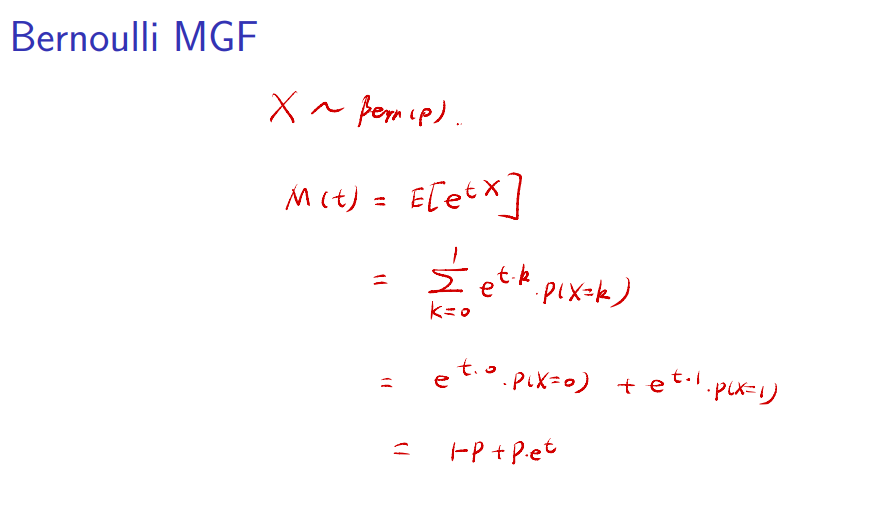 Bernoulli MGF
X ~ Bern(p).
M(t) = E[e^{tX}]
= \sum_{k=0}^{1} e^{t·k}·P(X=k)
= e^{t·0}·P(X=0) + e^{t·1}·P(X=1)
= 1-p + p·e^t